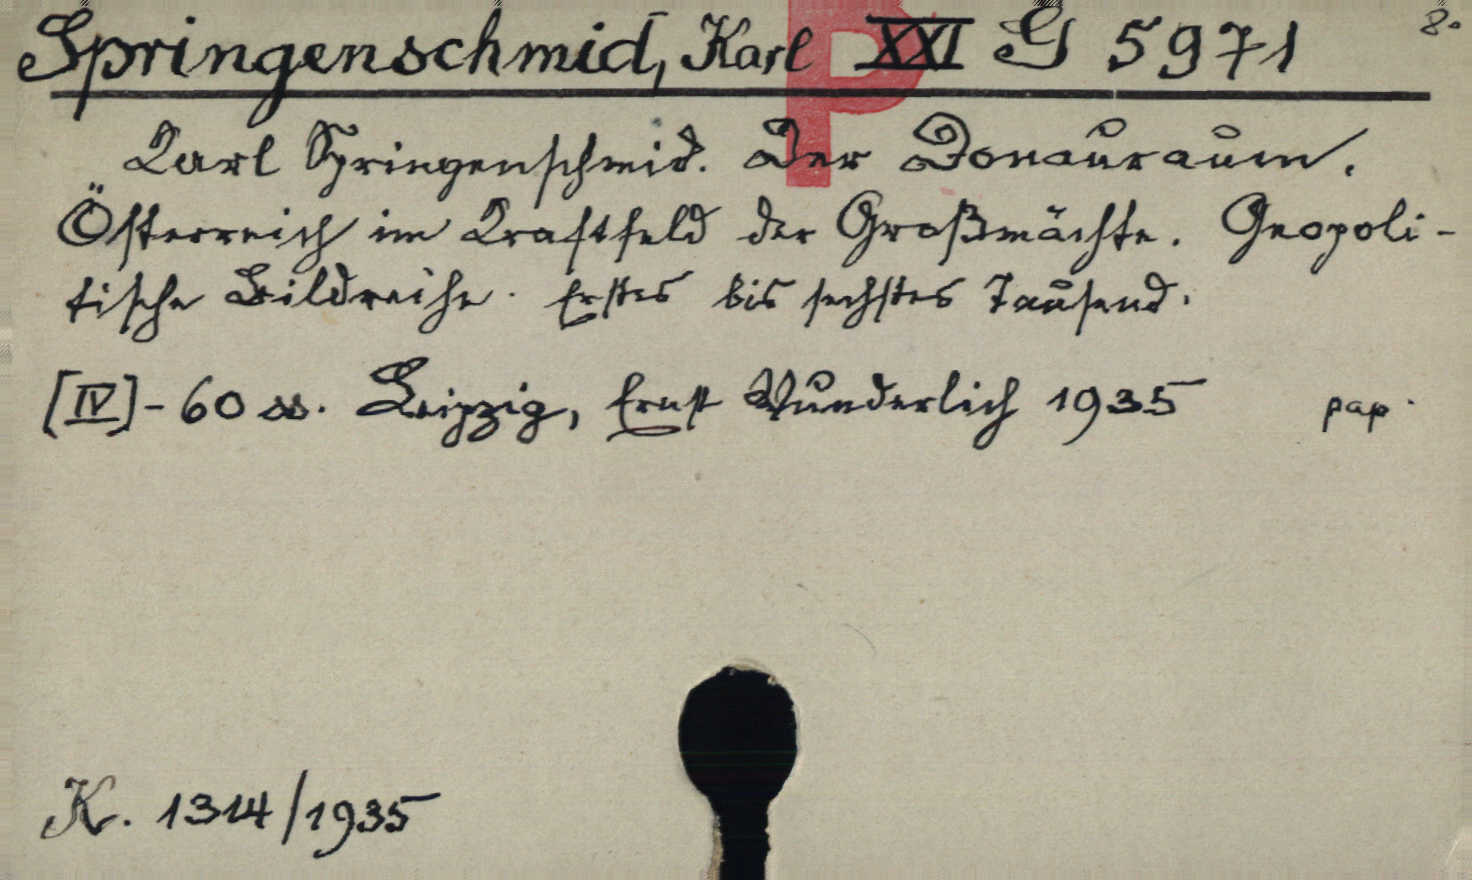 Springenschmid, Karl XXI G 5971 8°
P
Karl Springenschmid. Der Donauraum.
Österreich im Kraftfeld der Großmächte. Geopoli-
tische Bildreihe. Erstes bis sechstes Tausend.
[IV]-60 ss. Leipzig, Ernst Wunderlich 1935 pap.
K. 1314/1935